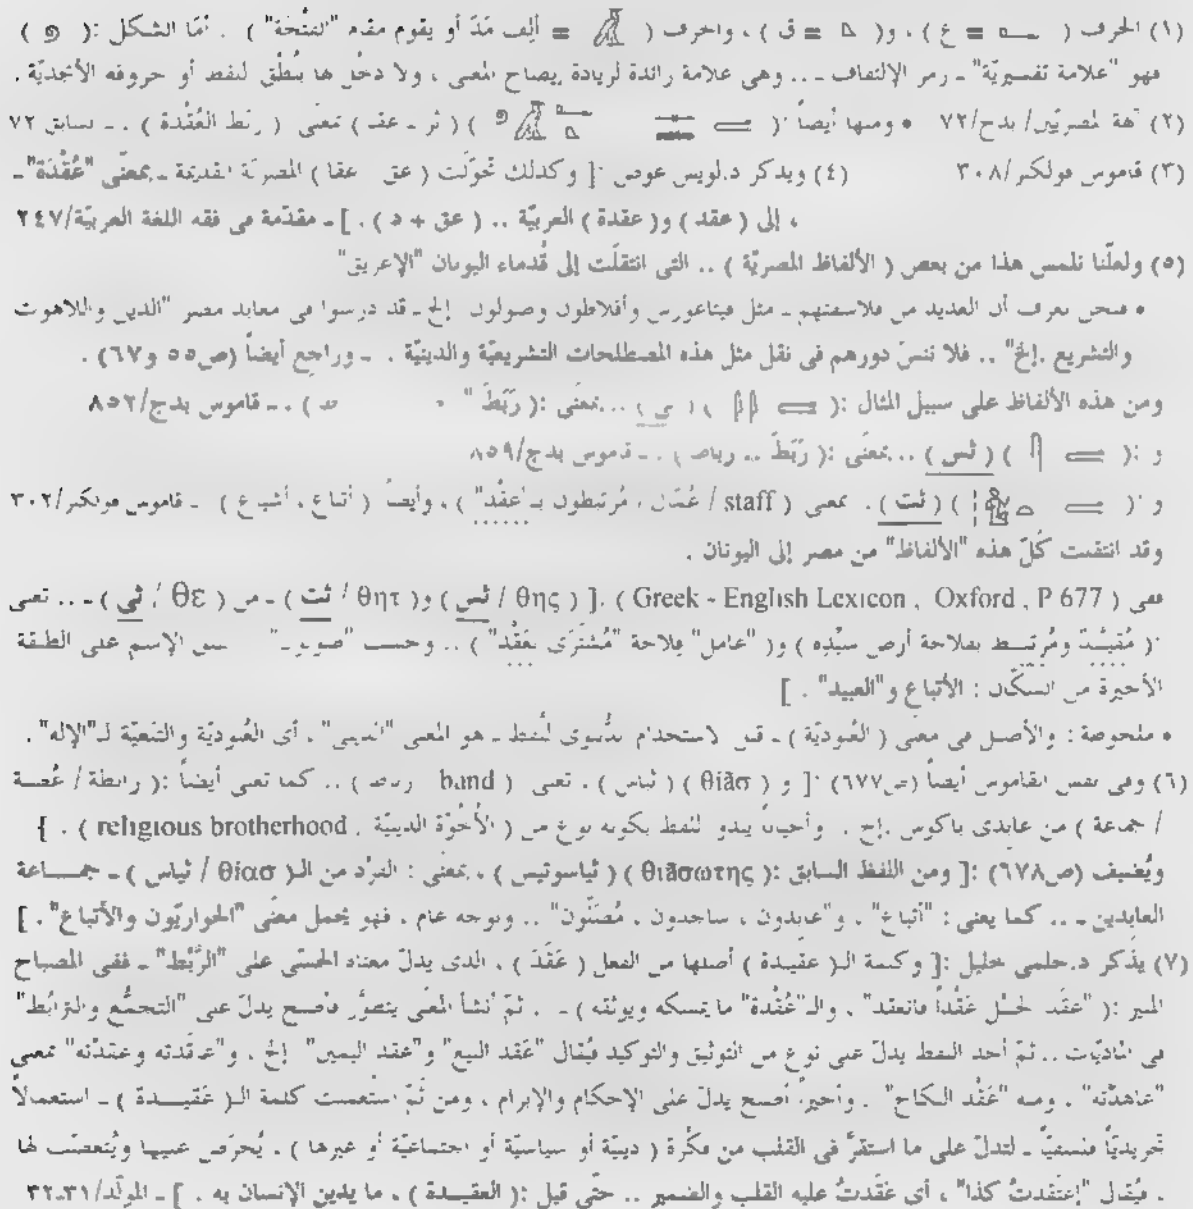 (١) الحرف ( 𓂝 = ع ) ، و( 𓈎 = ق ) ، والحرف ( 𓄿 = ألِف مَدّ أو يقوم مقام "الفتْحَة" ) . أمّا الشكل :( 𓏲 )
فهو "علامة تفسيريّة" ـ رمز الإلتفاف ـ .. وهى علامة زائدة لزيادة إيضاح المعنى ، ولا دخْل لها بنُطْق اللفظ أو حروفه الأبجديّة .
(٢) آلهة المصريّين/ بدج/٧٢ • ومنها أيضاً :( ) ( ثز ـ عقـ ) بمعنَى ( رَبَط العُقْدة ) . ـ السابق ٧٢
(٣) قاموس فولكنر/٣٠٨ (٤) ويذكر د.لويس عوض :[ وكذلك تحَوّلَت ( عق عقا ) المصريّة القديمة ـ بمعنَى "عُقْدَة" ـ
، إلى ( عقد ) و( عقدة ) العربيّة .. ( عق + د ) . ] ـ مقدّمة فى فقه اللغة العربيّة/٢٤٧
(٥) ولعلّنا نلمس هذا من بعض ( الألفاظ المصريّة ) .. التى انتقلَت إلى قُدماء اليونان "الإغريق"
• فنحن نعرف أن العديد من فلاسفتهم ـ مثل فيثاغورس وأفلاطون وصولون إلخ ـ قد درسوا فى معابد مصر "الدين واللاهوت
والتشريع .إلخ" .. فلا ننسَ دورهم فى نقل مثل هذه المصطلحات التشريعيّة والدينيّة . ـ وراجع أيضاً (ص٥٥ و٦٧) .
ومن هذه الألفاظ على سبيل المثال :( 𓍿 𓇋𓇋 ) ( ثى ) ...بمعنَى :( رَبَطَ " ) . ـ قاموس بدج/٨٥٢
و :( 𓍿 𓋴 ) ( ثس ) ...بمعنَى :( رَبَطَ .. رباط ) . ـ قاموس بدج/٨٥٩
و :( 𓍿 𓏏 ) ( ثت ) . بمعنى ( staff / عُمّال ، مُرتبطون بـ"عقْد" ) ، وأيضاً ( أتباع ، أشياع ) ـ قاموس فولكنر/٣٠٢
وقد انتقلت كُلّ هذه "الألفاظ" من مصر إلى اليونان .
ففى ( Greek - English Lexicon , Oxford , P 677 ) .[ ( θης / ثس ) و( θητ / ثت ) ـ من ( θε / ثى ) ـ .. تعنى
:( مُقيّـد ومُرتبـط بفلاحة أرض سيّده ) و( "عامل" فِلاحة "مُشتَرَى بعَقْد" ) .. وحسب الإسم على الطبقة
الأخيرة من السكّان : الأتباع و"العبيد" . ]
• ملحوظة : والأصل فى معنَى ( العُبوديّة ) ـ قبل الاستخدام الدُّنيوى للّفظ ـ هو المعنى "الدينى" . أى العُبوديّة والتبعيّة لـ"الإله" .
(٦) وفى نفس القاموس أيضاً (ص٦٧٧) :[ و ( θiãσ ) ( ثياس ) ، تعنى ( band رباط ) .. كما تعنى أيضاً :( رابطة / عُصبة
/ جماعة ) من عابدى باكوس .إلخ . وأحياناً يبدو اللفظ بكونه نوع من ( الأخُوّة الدينيّة , religious brotherhood ) . ]
ويُضيف (ص٦٧٨) :[ ومن اللفظ السابق :( θιãσωτης ) ( ثياسوتيس ) ، بمعنَى : الفرْد من الـ( θίασ / ثياس ) ـ جمـــاعة
العابدين ـ .. كما يعنى : "أتباع" . و"عابدون ، ساجدون ، مُصَلّون" .. وبوجه عام . فهو يحْمل معنَى "الحواريّون والأتباع" . ]
(٧) يذكر د.حلمى خليل :[ وكلمة الـ( عقيـدة ) أصلها من الفعل ( عَقَدَ ) ، الذى يدلّ معناه الحسّى على "الرَّبْط" ـ ففى المصباح
المنير :( "عقَد الحبْل عَقْداً فانعقد" . والـ"عُقْدة" ما يمسكه ويوثقه ) ـ . ثمّ أنشأ المعْنى يتطوّر فأصبح يدلّ على "التجمُّع والترابُط"
فى الماديّات .. ثمّ أخذ اللفظ يدلّ على نوع من التوثيق والتوكيد فيُقال "عَقد البيع" و"عقد اليمين" إلخ . و"عاقدته وعقدته" بمعنى
"عاهدْته" . ومنه "عَقْد النكاح" . وأخيراً أصبح يدلّ على الإحكام والإبرام . ومن ثَمّ استُعمِلت كلمة الـ( عَقيـــدة ) ـ استعمالاً
تجريديّاً فلسفيّاً ـ لتدلّ على ما استقرَّ فى القلب من فكْرة ( دينيّة أو سياسيّة أو اجتماعيّة أو غيرها ) . يُحرَص عليها ويُتعصّب لها
. فيُقال "إعتَقدتُ كذا" ، أى عَقَدتُ عليه القلب والضمير .. حتّى قيل :( العقيـــدة ) ، ما يدين الإنسان به . ] ـ المولّد/٣١ـ٣٢